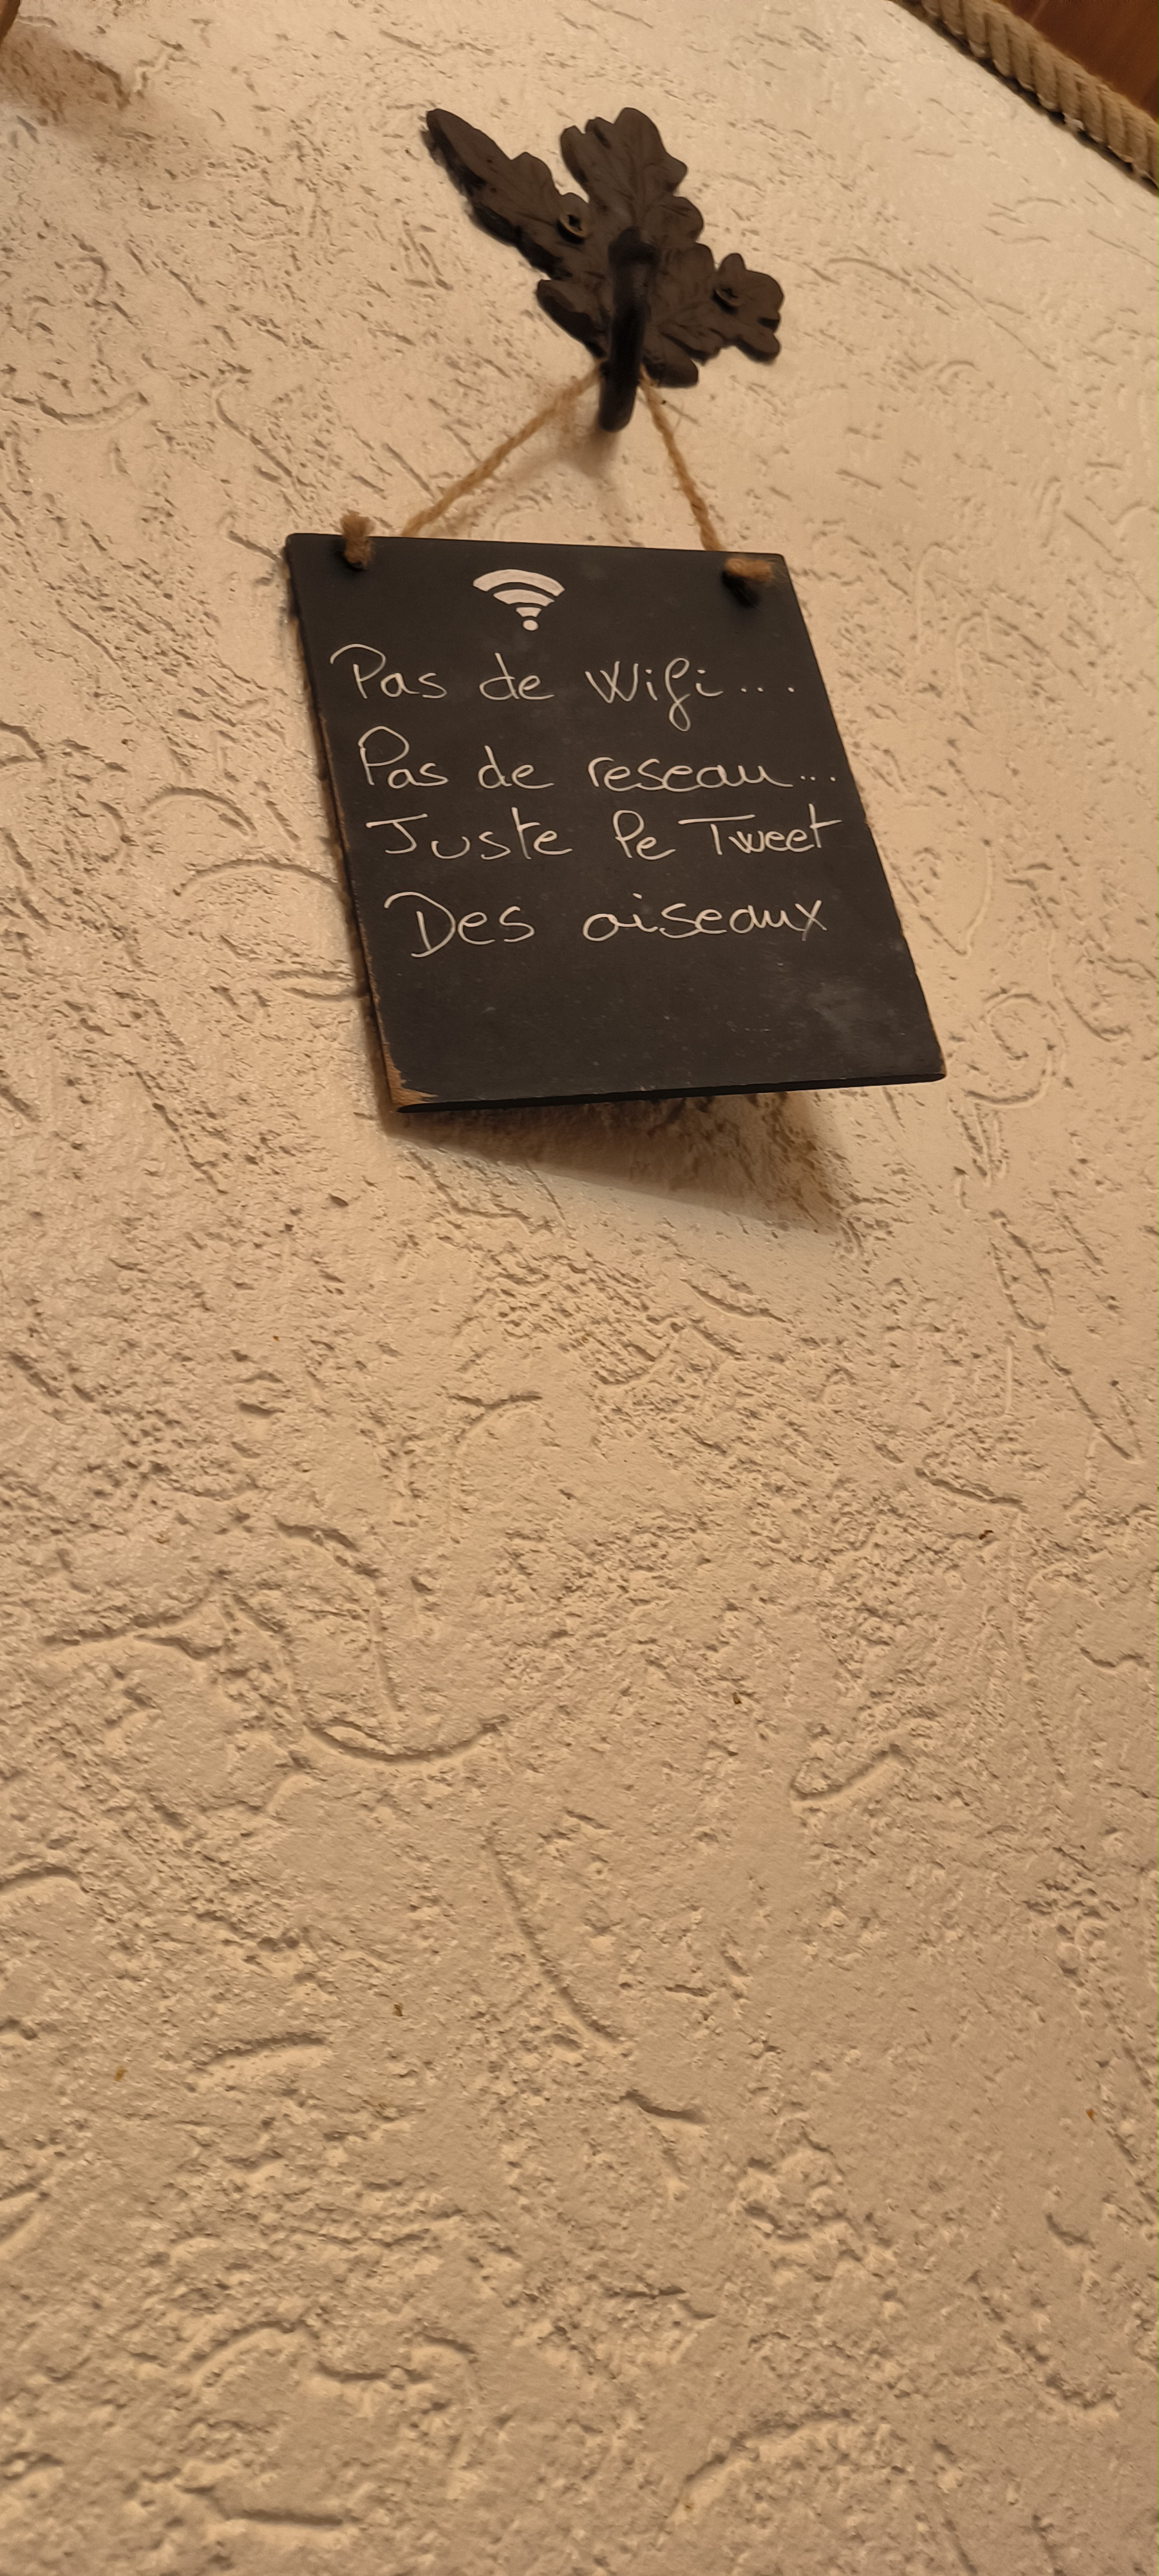 Pas de Wifi...
Pas de reseau...
Juste le Tweet
Des oiseaux